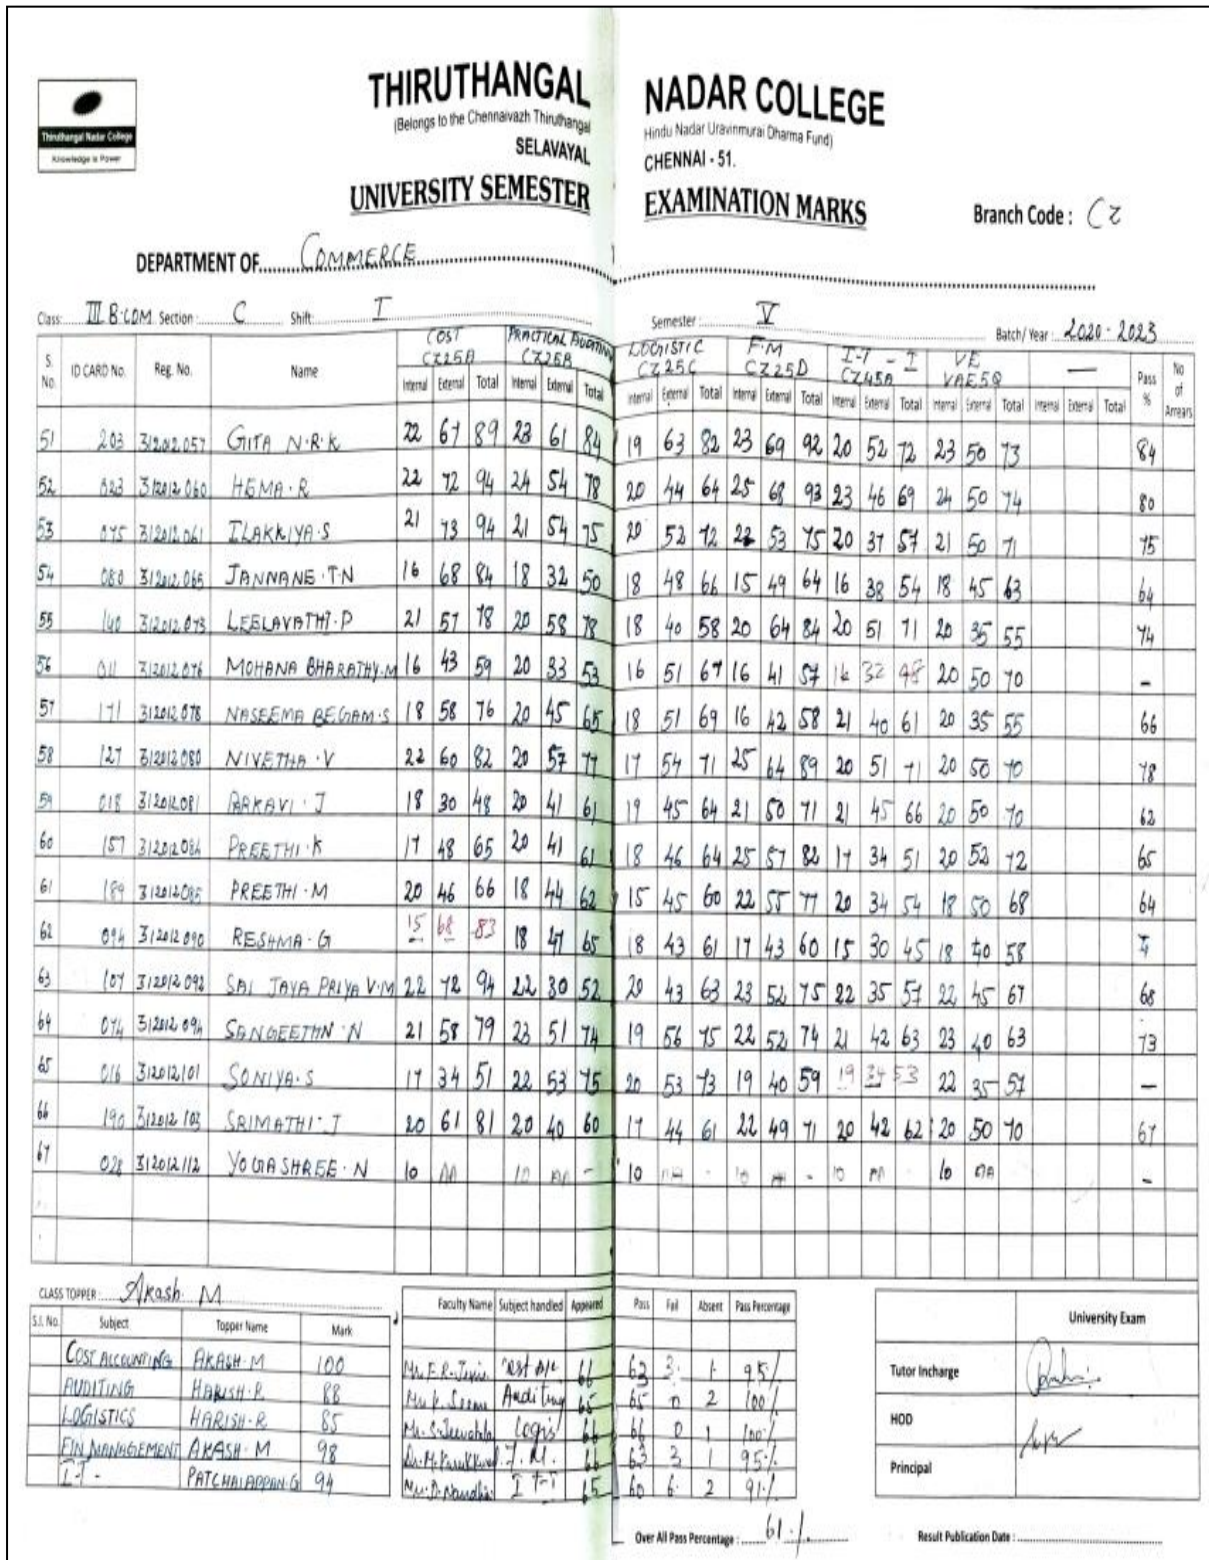 Thiruthangal Nadar College
Knowledge is Power
THIRUTHANGAL NADAR COLLEGE
(Belongs to the Chennaivazh Thiruthangal Hindu Nadar Uravinmurai Dharma Fund)
SELAVAYAL CHENNAI - 51.
UNIVERSITY SEMESTER EXAMINATION MARKS
Branch Code : CZ
DEPARTMENT OF COMMERCE
Class: III B.COM Section : C Shift: I Semester : V Batch/ Year : 2020-2023
S. No. ID CARD No. Reg. No. Name COST CZ25A PRACTICAL AUDITING CZ25B LOGISTIC CZ25C F.M CZ25D I-T - I CZ45A VE VAE5Q — Pass % No of Arrears
Internal External Total Internal External Total Internal External Total Internal External Total Internal External Total Internal External Total Internal External Total
51 203 312012057 GITA N.R.K 22 67 89 23 61 84 19 63 82 23 69 92 20 52 72 23 50 73 84
52 023 312012060 HEMA.R 22 72 94 24 54 78 20 44 64 25 68 93 23 46 69 24 50 74 80
53 075 312012061 ILAKKIYA.S 21 73 94 21 54 75 20 52 72 22 53 75 20 37 57 21 50 71 75
54 080 312012065 JANNANE.T.N 16 68 84 18 32 50 18 48 66 15 49 64 16 38 54 18 45 63 64
55 140 312012073 LEELAVATHI.P 21 57 78 20 58 78 18 40 58 20 64 84 20 51 71 20 35 55 74
56 011 312012076 MOHANA BHARATHY.M 16 43 59 20 33 53 16 51 67 16 41 57 16 32 48 20 50 70 -
57 171 312012078 NASEEMA BEGAM.S 18 58 76 20 45 65 18 51 69 16 42 58 21 40 61 20 35 55 66
58 127 312012080 NIVETHA.V 22 60 82 20 57 77 17 54 71 25 64 89 20 51 71 20 50 70 78
59 018 312012081 PARKAVI.J 18 30 48 20 41 61 19 45 64 21 50 71 21 45 66 20 50 70 62
60 157 312012084 PREETHI.K 17 48 65 20 41 61 18 46 64 25 57 82 17 34 51 20 52 72 65
61 189 312012085 PREETHI.M 20 46 66 18 44 62 15 45 60 22 55 77 20 34 54 18 50 68 64
62 094 312012090 RESHMA.G 15 68 83 18 47 65 18 43 61 17 43 60 15 30 45 18 40 58
63 107 312012092 SAI JAYA PRIYA V.M 22 72 94 22 30 52 20 43 63 23 52 75 22 35 57 22 45 67 68
64 074 312012094 SANGEETHA.N 21 58 79 23 51 74 19 56 75 22 52 74 21 42 63 23 40 63 73
65 016 312012101 SONIYA.S 17 34 51 22 53 75 20 53 73 19 40 59 19 34 53 22 35 57 -
66 190 312012103 SRIMATHI.J 20 61 81 20 40 60 17 44 61 22 49 71 20 42 62 20 50 70 67
67 028 312012112 YOGASHREE.N 10 AA 10 AA - 10 AA - 10 AA - 10 AA 10 AA -
CLASS TOPPER : Akash. M
S.I. No. Subject Topper Name Mark
COST ACCOUNTING AKASH.M 100
AUDITING HARISH.R 88
LOGISTICS HARISH.R 85
FIN MANAGEMENT AKASH.M 98
I-T - PATCHAIAPPAN.G 94
Faculty Name Subject handled Appeared Pass Fail Absent Pass Percentage
66 63 3 1 95%
Auditing 65 65 0 2 100%
Logis 66 66 0 1 100%
F.M. 66 63 3 1 95%
I T-I 65 60 6 2 91%
Over All Pass Percentage : 61%
University Exam
Tutor Incharge
HOD
Principal
Result Publication Date :